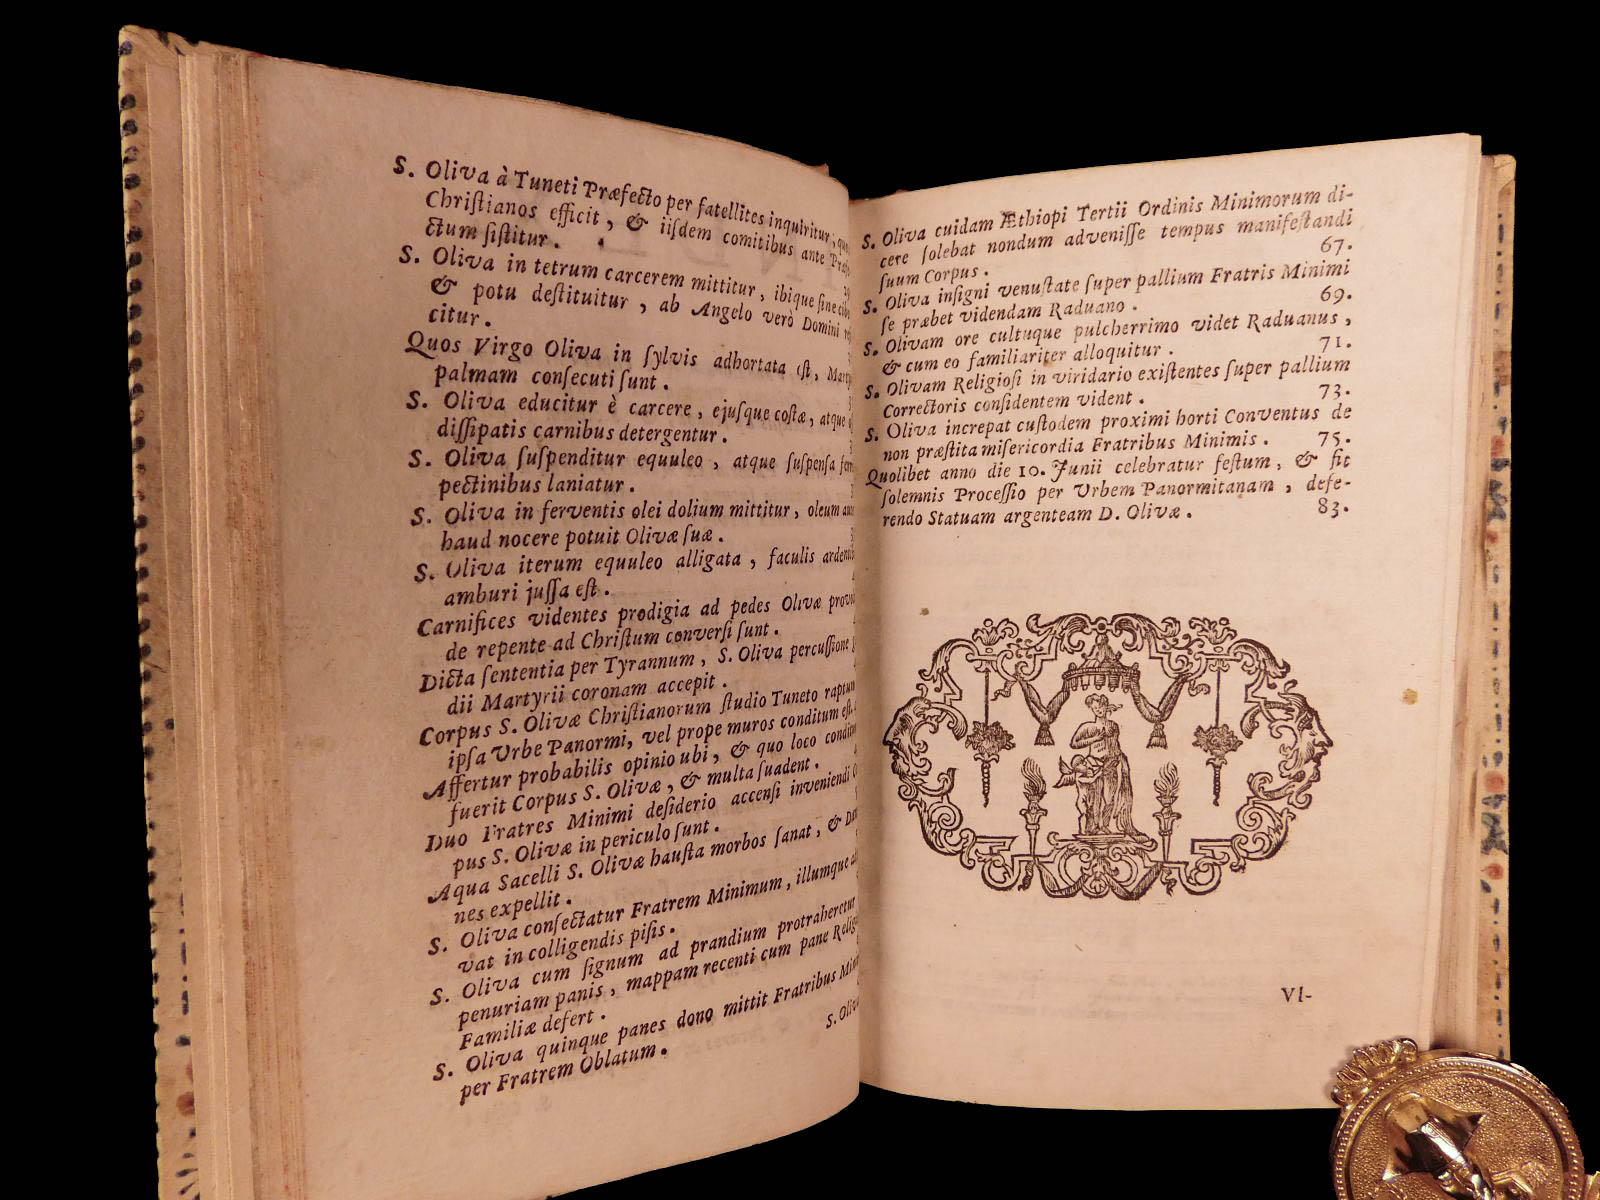 S. Oliva à Tuneti Præfecto per ſatellites inquiritur, quos
Chriſtianos efficit, & iiſdem comitibus ante Præfe-
ctum ſiſtitur.
S. Oliva in tetrum carcerem mittitur, ibique ſine cibo
& potu deſtituitur, ab Angelo verò Domini
citur.
Quos Virgo Oliva in ſylvis adhortata eſt, Martyrii
palmam conſecuti ſunt.
S. Oliva educitur è carcere, ejuſque coſtæ, atque
diſſipatis carnibus detergentur.
S. Oliva ſuſpenditur equuleo, atque ſuſpenſa
pectinibus laniatur.
S. Oliva in ferventis olei dolium mittitur, oleum
haud nocere potuit Olivæ ſuæ.
S. Oliva iterum equuleo alligata, faculis
amburi juſſa eſt.
Carnifices videntes prodigia ad pedes Olivæ
de repente ad Chriſtum converſi ſunt.
Dicta ſententia per Tyrannum, S. Oliva percuſſione
dii Martyrii coronam accepit.
Corpus S. Olivæ Chriſtianorum ſtudio Tuneto raptum
ipſa Urbe Panormi, vel prope muros conditum eſt.
Affertur probabilis opinio ubi, & quo loco
fuerit Corpus S. Olivæ, & multa ſuadent.
Duo Fratres Minimi deſiderio accenſi inveniendi
pus S. Olivæ in periculo ſunt.
Aqua Sacelli S. Olivæ hauſta morbos ſanat, &
nes expellit.
S. Oliva conſectatur Fratrem Minimum, illumque
vat in colligendis piſis.
S. Oliva cum ſignum ad prandium protraheretur
penuriam panis, mappam recenti cum pane
Familiæ defert.
S. Oliva quinque panes dono mittit Fratribus
per Fratrem Oblatum.
S. Oliva
S. Oliva cuidam Æthiopi Tertii Ordinis Minimorum di-
cere ſolebat nondum adveniſſe tempus manifeſtandi
ſuum Corpus. 67.
S. Oliva inſigni venuſtate ſuper pallium Fratris Minimi
ſe præbet videndam Raduano. 69.
S. Olivam ore cultuque pulcherrimo videt Raduanus,
& cum eo familiariter alloquitur. 71.
S. Olivam Religioſi in viridario exiſtentes ſuper pallium
Correctoris conſidentem vident. 73.
S. Oliva increpat cuſtodem proximi horti Conventus de
non præſtita miſericordia Fratribus Minimis. 75.
Quolibet anno die 10. Junii celebratur feſtum, & fit
ſolemnis Proceſſio per Urbem Panormitanam, defe-
rendo Statuam argenteam D. Olivæ. 83.
VI-